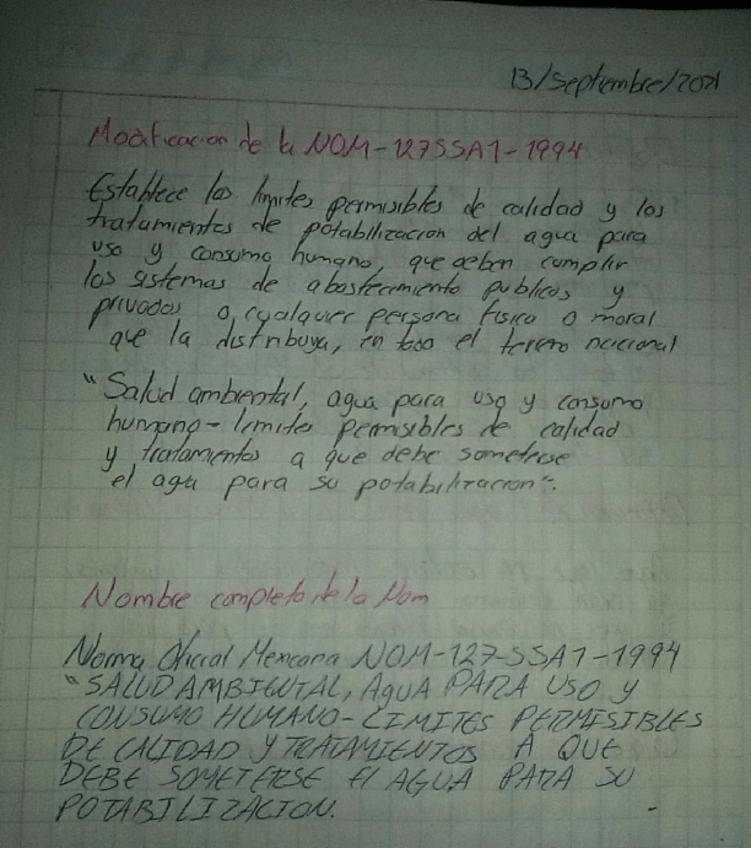 13/Septiembre/2021
Modificacion de la NOM-127SSA1-1994
Establece los limites permisibles de calidad y los
tratamientos de potabilizacion del agua para
uso y consumo humano, que deben cumplir
los sistemas de abastecimiento publicos y
privados o cualquier persona fisica o moral
que la distribuya, en todo el terreno nacional
"Salud ambiental, agua para uso y consumo
humano-limites permisibles de calidad
y tratamientos a que debe someterse
el agua para su potabilizacion".
Nombre completo de la Nom
Norma Oficial Mexicana NOM-127-SSA1-1994
"SALUD AMBIENTAL, AgUA PARA USO y
CONSUMO HUMANO-LIMITES PERMISIBLES
DE CALIDAD Y TRATAMIENTOS A QUE
DEBE SOMETERSE El AGUA PARA SU
POTABILIZACION.